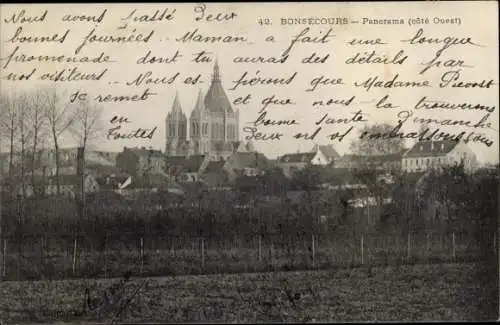 42. BONSECOURS – Panorama (côté Ouest)
Nous avons passé Deux
bonnes journées. Maman, a fait une longue
promenade dont tu auras des détails par
nos visiteurs. Nous espérons que Madame Prevost
se remet et que nous la trouverons
en bonne santé au retour
Toutes deux nous t'embrassons